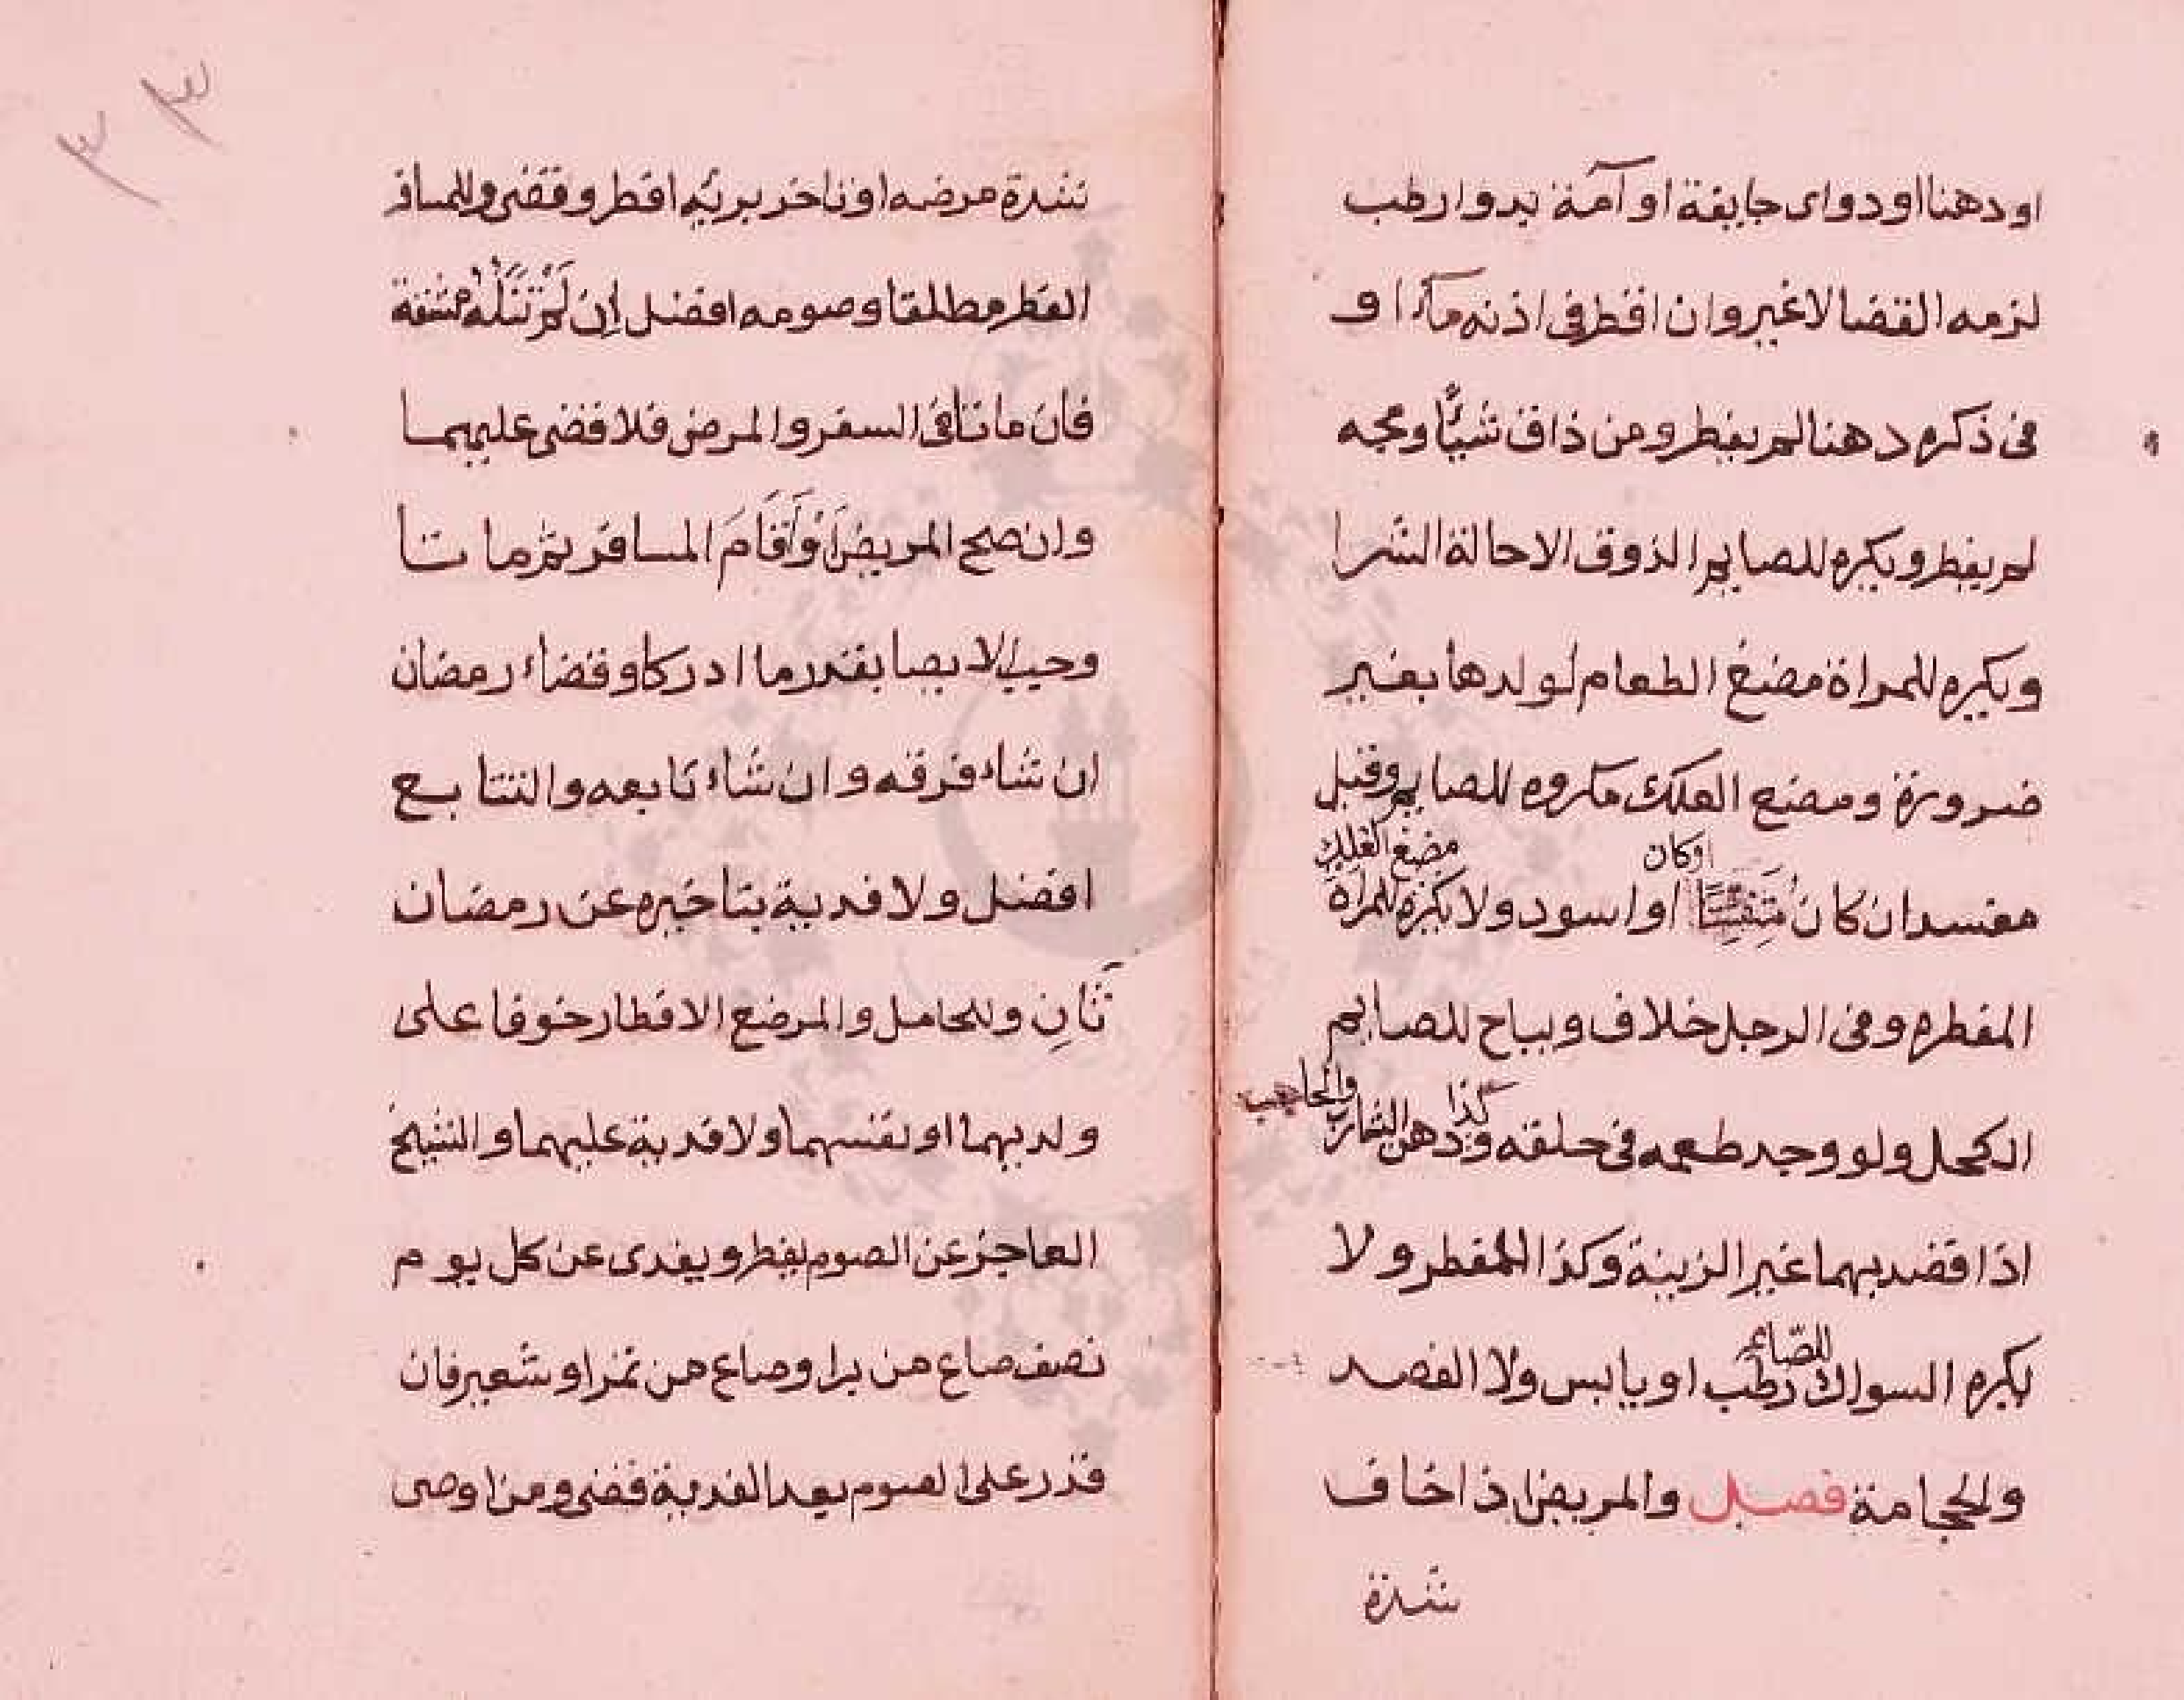 او دهنا او دواى جايفة او آمة بدوا رطب
لزمه القضا لا غير وان اقطر فى اذنه ماء او
فى ذكره دهنا لم يفطر ومن ذاق شيئًا ومجه
لم يفطر ويكره للصايم الذوق الا حالة الشرا
ويكره للمراة مضغ الطعام لولدها بغير
ضرورة ومضع العلك مكروه للصايم وقيل
مفسد ان كان متفتتًا او كان اسود ولا يكره للمراة مضغ العلك
المفطرة وفى الرجل خلاف ويباح للصايم
الكحل ولو وجد طعمه فى حلقه وكذا دهن الشارب والحاجب
اذا قصد بهما غير الزينة وكذا للمفطر ولا
يكره السواك للصّائم رطب او يابس ولا الفصد
والحجامة فصل والمريض اذا خاف
شدة
٣٣
شدة مرضه او تاخر بريه افطر وقضى وللمسافر
الفطر مطلقا وصومه افضل إن لَمْ تَنَلْهُ مشقة
فان ماتا فى السفر والمرض فلا قضى عليهما
وان صح المريض أَوْ أَقَامَ المسافر ثم ماتا
وجب الايصا بقدر ما ادركا وقضاء رمضان
ان شاء فرقه وان شاء تابعه والتتابع
افضل ولا فدية بتاخيره عن رمضان
ثَانٍ وللحامل والمرضع الافطار خوفا على
ولديهما او نفسهما ولا فدية عليهما والشيخ
العاجز عن الصوم يفطر ويفدى عن كل يوم
نصف صاع من بر او صاع من تمر او شعير فان
قدر على الصوم بعد الفدية قضى ومن اوصى